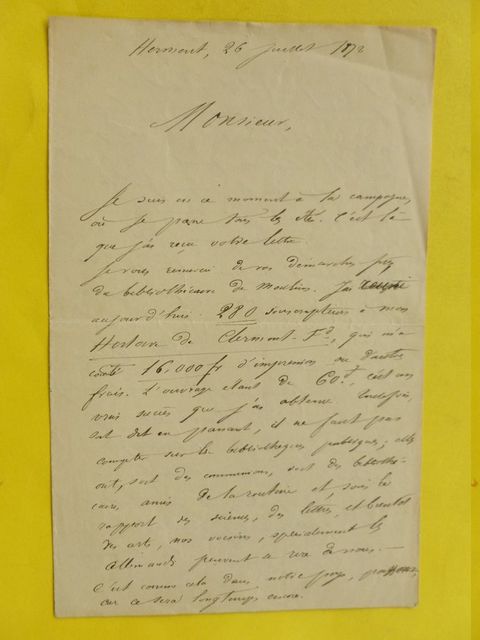 Herment, 26 juillet 1872
Monsieur,
Je suis en ce moment à la campagne,
où je passe tous les étés. C'est là
que j'ai reçu votre lettre.
Je vous remercie de vos démarches près
du bibliothécaire de Moulins. J'ai
aujourd'hui 280 souscripteurs à mon
Histoire de Clermont-Fd, qui m'a
coûté 16,000 fr d'impression ou d'autres
frais. L'ouvrage étant de 60 f, c'est un
vrai succès que j'ai obtenu. Toutefois,
soit dit en passant, il ne faut pas
compter sur les bibliothèques publiques; elles
ont, soit des commissions, soit des bibliothé-
caires, amis de la routine et, sous le
rapport des sciences, des lettres, et bientôt
des arts, nos voisins, spécialement les
Allemands peuvent se rire de nous.—
C'est comme cela dans notre pays,
ce sera longtemps encore.